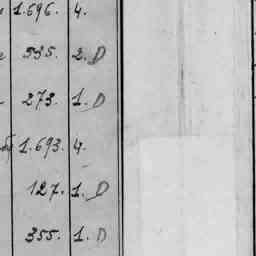 1.696. 4.
335. 2. D
273. 1. D
1.693. 4.
127. 1. D
355. 1. D